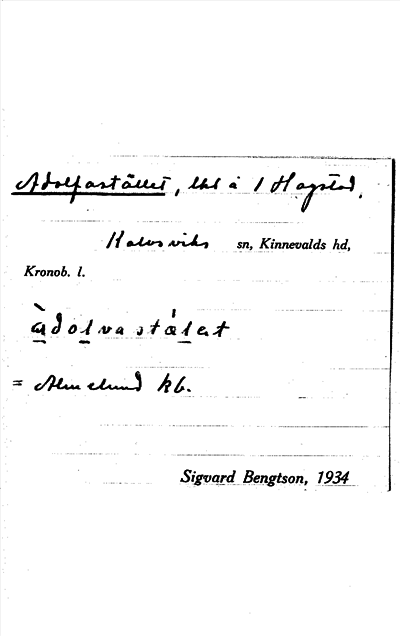 Adolfastället, lht å 1 Hagstad,
Kalvsviks sn, Kinnevalds hd,
Kronob. l.
àdolvastálet
= Almelund kb.
Sigvard Bengtson, 1934